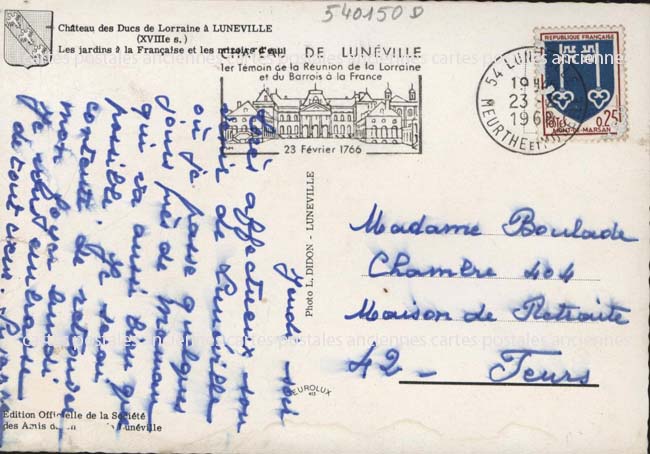 540150 D
Château des Ducs de Lorraine à LUNEVILLE
(XVIIIe s.)
Les jardins à la Française et les miroirs d'eau
DE LUNÉVILLE
1er Témoin de la Réunion de la Lorraine
et du Barrois à la France
23 Février 1766
54 LUNÉ
19
23
1968
MEURTHE ET M
REPUBLIQUE FRANÇAISE
POSTES 0,25
MONT-DE-MARSAN
Jeudi soir
Très affectueux sou
venir de Lunéville
où je passe quelques
jours près de Maman
qui va aussi bien que
possible. Je serai
contente de retrouver
mon foyer lundi.
Je vous embrasse
de tout cœur.
Photo L. DIDON - LUNEVILLE
Madame Boulade
Chambre 404
Maison de Retraite
42 - Feurs
EUROLUX
Edition Officielle de la Société
des Amis Lunéville
cartes postales anciennes cartes postales anciennes cartes postales anciennes